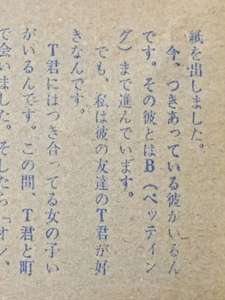 紙を出しました。
今、つきあっている彼がいるん
です。その彼とはB（ペッティン
グ）まで進んでいます。
でも、私は彼の友達のT君が好
きなんです。
T君にはつき合ってる女の子い
がいるんです。この間、T君と町
で会いました。そしたら「オン、